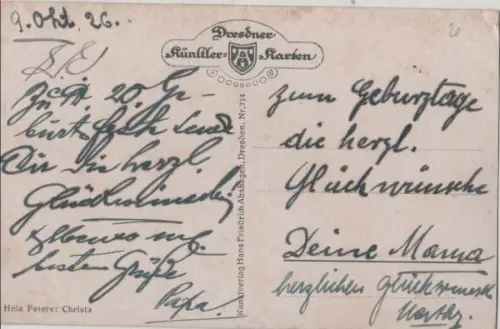 9. Okt. 26.
Dresdner
Künstler-Karten
L. E.
Zu D. 20. Ge-
burtstag sende
Dir die herzl.
Glückwünsche
Ebenso m.
besten Grüße
Papa.
Kunstverlag Hans Friedrich Abshagen, Dresden. Nr. 714
zum Geburtstage
die herzl.
Glückwünsche
Deine Mama
herzlichen Glückwunsch
Hela Peters: Christa